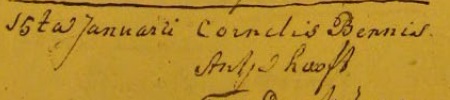 15ta Januarii Cornelis Bennis.
Antje hooft